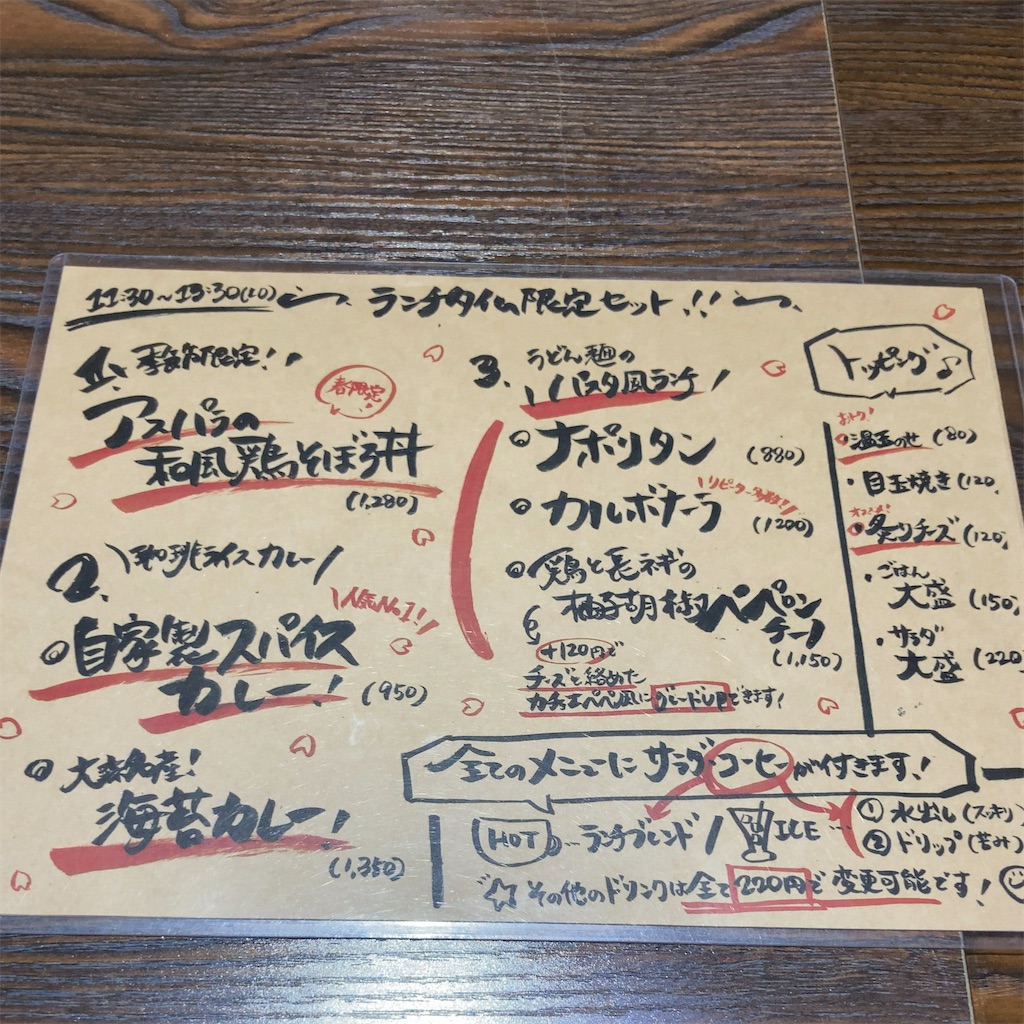 11:30~15:30(LO) ランチタイム限定セット!!
1. 季節限定!!
春限定!
アスパラの
和風鶏そぼろ丼
(1,280)
2. \珈琲ライスカレー/
\人気No.1!/
◎自家製スパイス
カレー! (950)
◎大森名産!
海苔カレー!
(1,350)
3. うどん麺の
\パスタ風ランチ/
◎ナポリタン (880)
\リピーター多数!!/
◎カルボナーラ (1200)
◎鶏と長ネギの
柚子胡椒ペペロン
チーノ
(1,150)
+120円で
チーズと絡めた
カチョエペペ風にグレードUPできます!
トッピング♪
おトク!
・温玉のせ (80)
・目玉焼き (120
オススメ!
・炙りチーズ (120)
・ごはん
大盛 (150)
・サラダ
大盛 (220
全てのメニューにサラダ・コーヒーが付きます!
HOT…ランチブレンド/ICE…
①水出し(スッキリ)
②ドリップ(苦み)
☆その他のドリンクは全て220円で変更可能です!